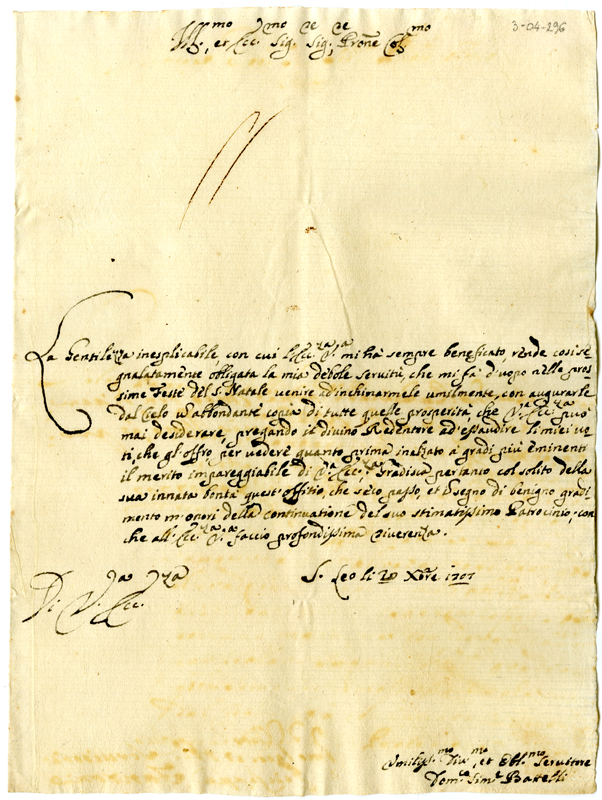 3-04-296
Ill.mo et Ecc.mo Sig.re Sig.re Prone Col.mo
La Gentilezza inesplicabile, con cui l'Ecc.za V.a mi hà sempre beneficato, rende così se
gnalatamente obligata la mia debole servitù, che mi fà d'uopo nelle pros
sime Feste del S. Natale venire ad'inchinarmele umilmente, con augurarle
dal Cielo un'abbondante copia di tutte quelle prosperità, che V.a Ecc.za può
mai desiderare, pregando il divino Redentore ad'essaudire li miei vo
ti, che gl'offro per vedere quanto prima inalzato à gradi più eminenti
il merito impareggiabile di V.a Ecc.za Gradisca pertanto col solito della
sua innata bontà quest'offitio, che seco passo, et in segno di benigno gradi
mento m'onori della continuatione del suo stimatissimo Patrocinio; con
che all'Ecc.za V.a faccio profondissima riverenza.
Di V.a Ecc.za
S. Leo li Xbre 1707
Umiliss.mo Div.mo, et Obl.mo Servitore
Dom.co Sim.e